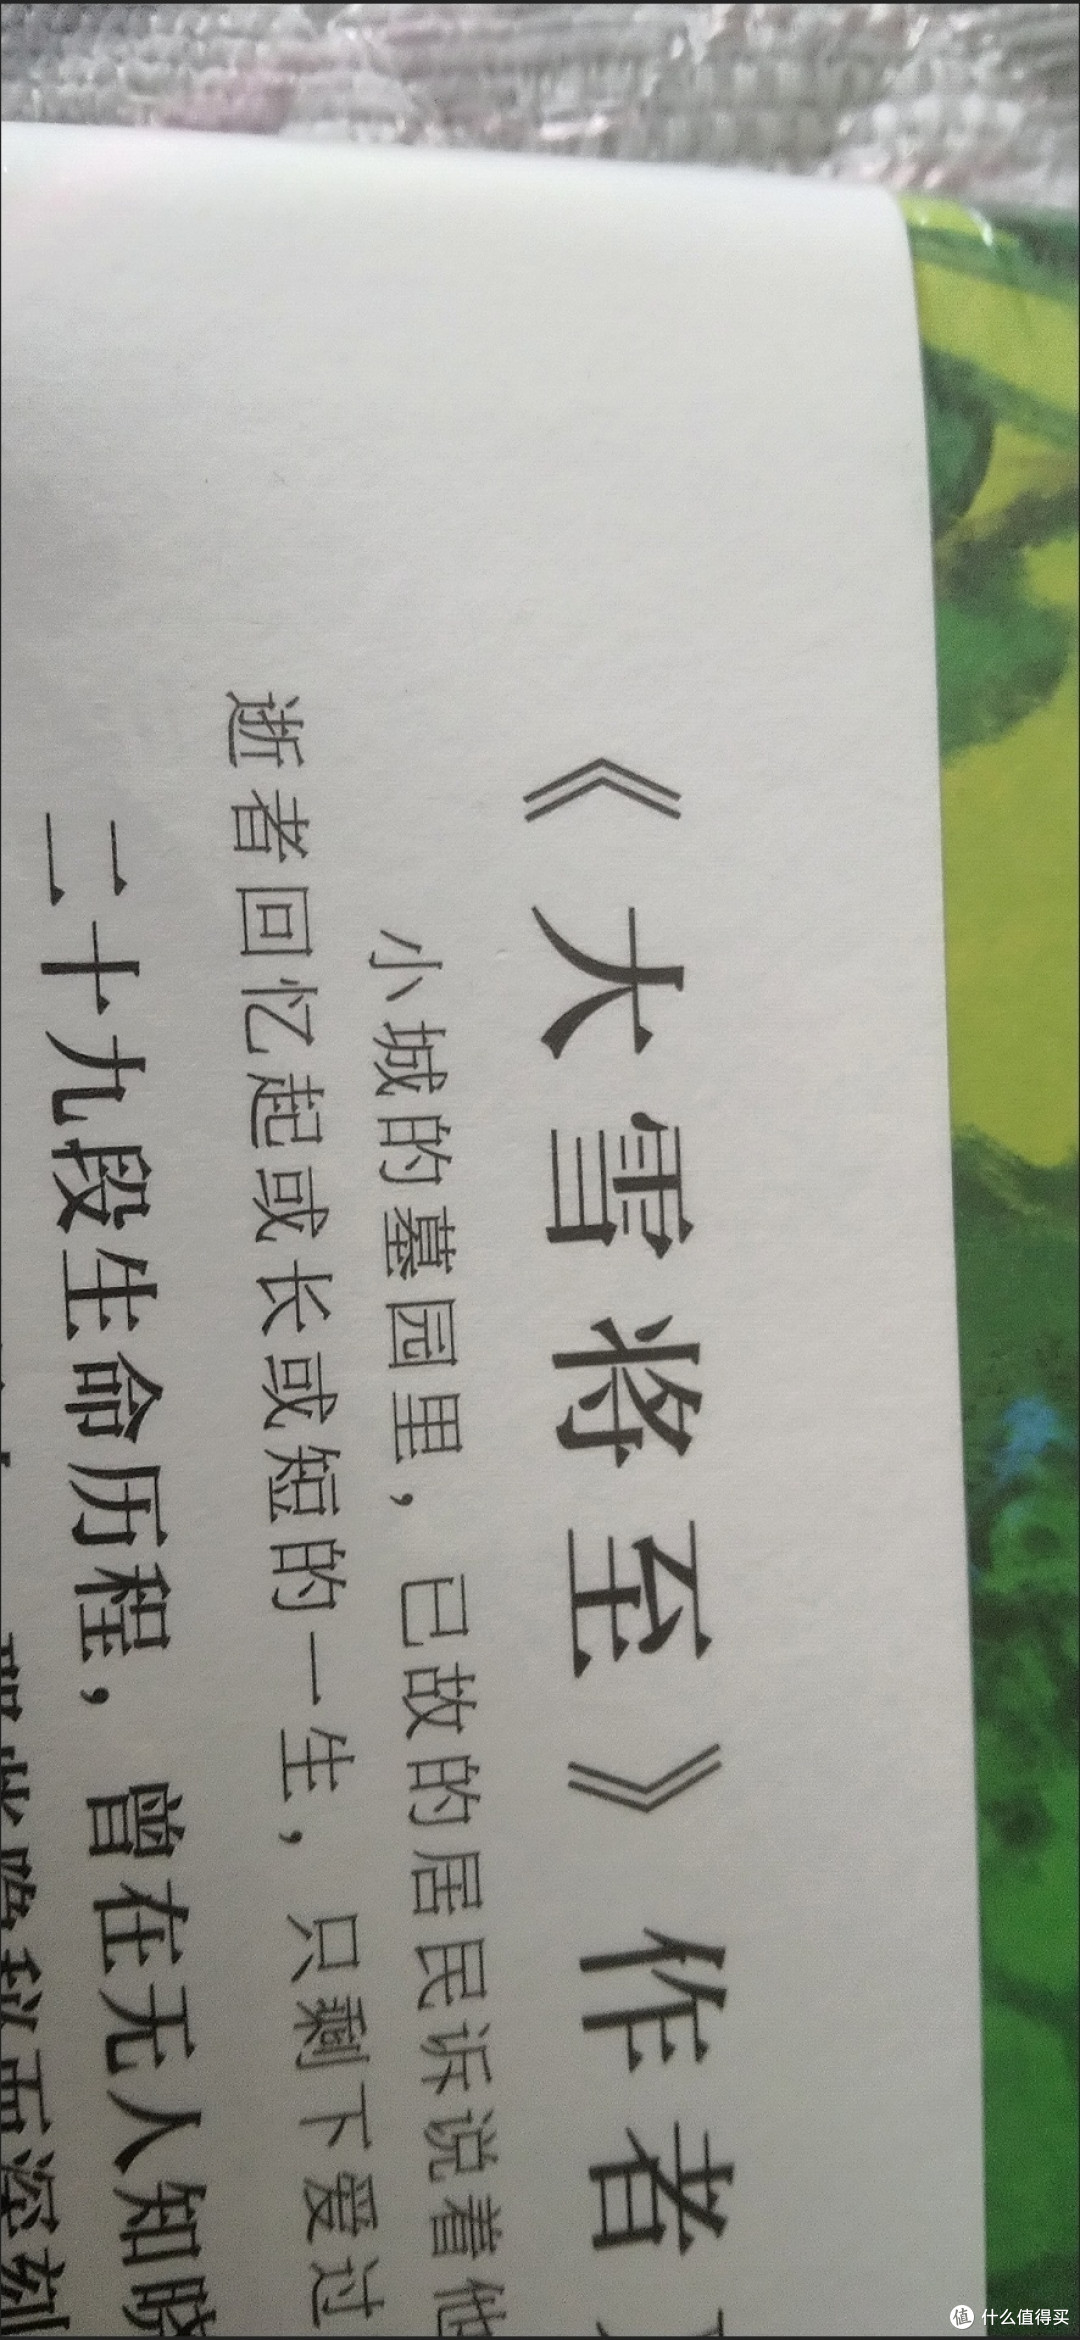 《大雪将至》作者
小城的墓园里，已故的居民诉说着他
逝者回忆起或长或短的一生，只剩下爱过
二十九段生命历程，曾在无人知晓
隐秘而深刻
什么值得买